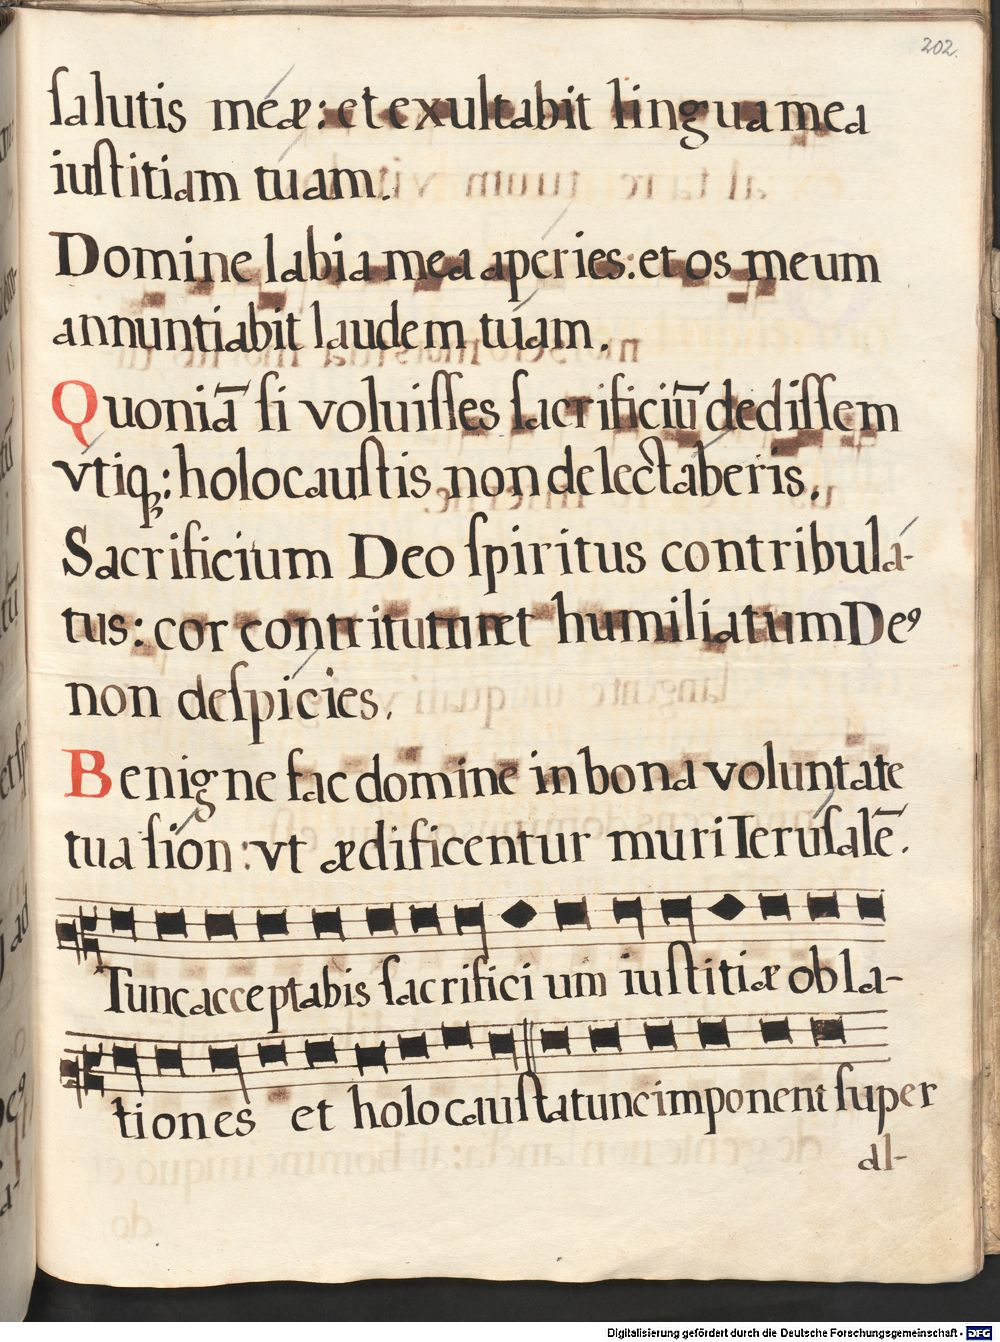 202.
ſalutis meæ: et exultabit lingua mea
iuſtitiam tuam.
Domine labia mea aperies: et os meum
annuntiabit laudem tuam.
Quoniā ſi voluiſſes ſacrificiū dediſſem
vtiqꝫ: holocauſtis non delectaberis.
Sacrificium Deo ſpiritus contribula-
tus: cor contritum et humiliatum Deꝰ
non deſpicies.
Benigne fac domine in bona voluntate
tua ſion: vt ædificentur muri Ieruſalē.
Tunc acceptabis ſacrificium iuſtitiæ obla-
tiones et holocauſta tunc imponent ſuper
al-
Digitalisierung gefördert durch die Deutsche Forschungsgemeinschaft - DFG